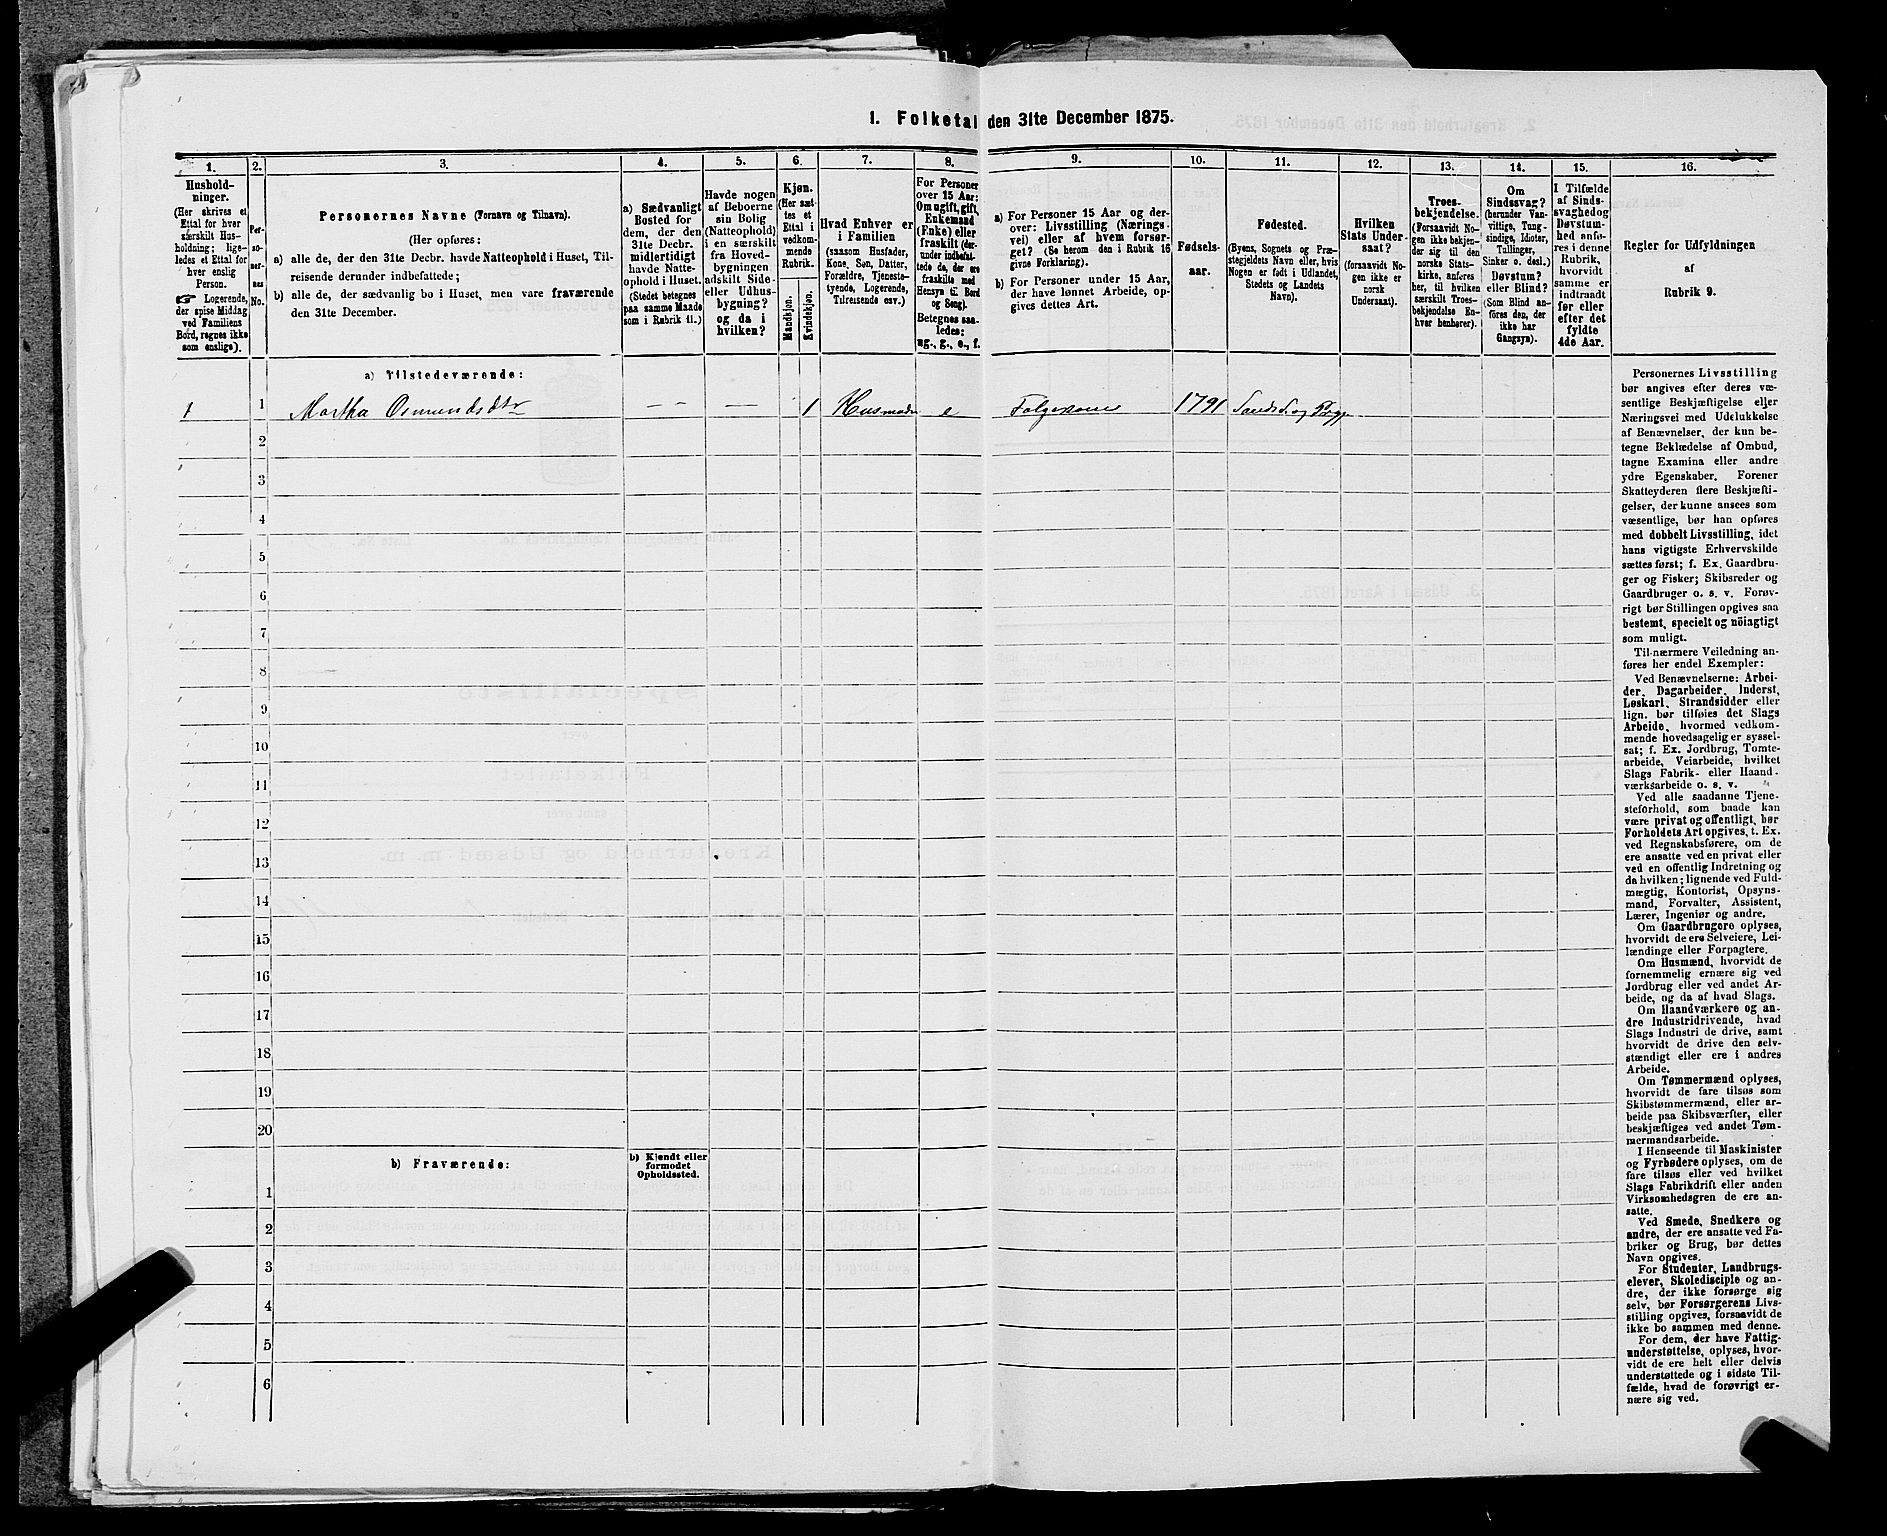 1. Folketal den 31te December 1875.
1.
Hushold-
ninger.
(Her skrives et
Ettal for hver
særskilt Hus-
holdning; lige-
ledes et Ettal for
hver enslig
Person.
☞ Logerende,
der spise Middag
ved Familiens
Bord, regnes ikke
som enslige).
2.
Per-
so-
ner-
nes
No.
3.
Personernes Navne (Fornavn og Tilnavn).
(Her opføres:
a) alle de, der den 31te Decbr. havde Natteophold i Huset, Til-
reisende derunder indbefattede;
b) alle de, der sædvanlig bo i Huset, men vare fraværende
den 31te December.
4.
a) Sædvanligt
Bosted for
dem, der den
31te Decbr.
midlertidigt
havde Natte-
ophold i Huset.
(Stedet betegnes
paa samme Maade
som i Rubrik 11.)
5.
Havde nogen
af Beboerne
sin Bolig
(Natteophold)
i en særskilt
fra Hoved-
bygningen
adskilt Side-
eller Udhus-
bygning?
og da i
hvilken?
6.
Kjøn.
(Her sæt-
tes et
Ettal i
vedkom-
mende
Rubrik.
Mandkjøn.
Kvindekjøn.
7.
Hvad Enhver er
i Familien
(saasom Husfader,
Kone, Søn, Datter,
Forældre, Tjeneste-
tyende, Logerende,
Tilreisende osv.)
8.
For Personer
over 15 Aar:
Om ugift, gift,
Enkemand
(Enke) eller
fraskilt (der-
under indbefat-
tede de, der ere
fraskilte med
Hensyn til Bord
og Seng).
Betegnes saa-
ledes:
ug., g., e., f.
9.
a) For Personer 15 Aar og der-
over: Livsstilling (Nærings-
vei) eller af hvem forsør-
get? (Se herom den i Rubrik 16
givne Forklaring).
b) For Personer under 15 Aar,
der have lønnet Arbeide, op-
gives dettes Art.
10.
Fødsels-
aar.
11.
Fødested.
(Byens, Sognets og Præ-
stegjeldets Navn eller, hvis
Nogen er født i Udlandet,
Stedets og Landets
Navn).
12.
Hvilken
Stats Under-
saat?
(forsaavidt No-
gen ikke er
norsk
Undersaat).
13.
Troes-
bekjendelse.
(Forsaavidt No-
gen ikke bekjen-
der sig til den
norske Stats-
kirke, anføres
her, til hvilken
særskilt Troes-
bekjendelse En-
hver henhører).
14.
Om
Sindssvag?
(herunder Van-
vittige, Tung-
sindige, Idioter,
Tullinger,
Sinker o. desl.)
Døvstum?
eller Blind?
(Som Blind an-
føres den, der
ikke har
Gangsyn).
15.
I Tilfælde
af Sinds-
svaghed og
Døvstum-
hed anfø-
res i denne
Rubrik,
hvorvidt
samme er
indtraadt
før eller
efter det
fyldte
4de Aar.
16.
Regler for Udfyldningen
af
Rubrik 9.
a) Tilstedeværende:
1 1 Martha Osmundsdtr — — — 1 Husmoder e Folgekone 1791 Sands S. og Prgj.
2
3
4
5
6
7
8
9
10
11
12
13
14
15
16
17
18
19
20
b) Fraværende:
b) Kjendt eller
formodet
Opholdssted.
1
2
3
4
5
6
Personernes Livsstilling
bør angives efter deres væ-
sentlige Beskjæftigelse eller
Næringsvei med Udelukkelse
af Benævnelser, der kun be-
tegne Beklædelse af Ombud,
tagne Examina eller andre
ydre Egenskaber. Forener
Skatteyderen flere Beskjæfti-
gelser, der kunne ansees som
væsentlige, bør han opføres
med dobbelt Livsstilling, idet
hans vigtigste Erhvervskilde
sættes først; f. Ex. Gaardbru-
ger og Fisker; Skibsreder og
Gaardbruger o. s. v. Forøv-
rigt bør Stillingen opgives saa
bestemt, specielt og nöiagtigt
som muligt.
Til nærmere Veiledning an-
føres her endel Exempler:
Ved Benævnelserne: Arbei-
der, Dagarbeider, Inderst,
Løskarl, Strandsidder eller
lign. bør tilføies det Slags
Arbeide, hvormed vedkom-
mende hovedsagelig er syssel-
sat; f. Ex. Jordbrug, Tomte-
arbeide, Veiarbeide, hvilket
Slags Fabrik- eller Haand-
værksarbeide o. s. v.
Ved alle saadanne Tjene-
steforhold, som baade kan
være privat og offentligt, bør
Forholdets Art opgives, t. Ex.
ved Regnskabsførere, om de
ere ansatte ved en privat eller
ved en offentlig Indretning og
da hvilken; lignende ved Fuld-
mægtig, Kontorist, Opsyns-
mand, Forvalter, Assistent,
Lærer, Ingeniør og andre.
Om Gaardbrugere oplyses,
hvorvidt de ere Selveiere, Lei-
lændinge eller Forpagtere.
Om Husmænd, hvorvidt de
fornemmelig ernære sig ved
Jordbrug eller ved andet Ar-
beide, og da af hvad Slags.
Om Haandværkere og an-
dre Industridrivende, hvad
Slags Industri de drive, samt
hvorvidt de drive den selv-
stændigt eller ere i andres
Arbeide.
Om Tømmermænd oplyses,
hvorvidt de fare tilsøs som
Skibstømmermænd, eller ar-
beide paa Skibsværfter, eller
beskjæftiges ved andet Tøm-
mermandsarbeide.
I Henseende til Maskinister
og Fyrbødere oplyses, om de
fare tilsøs eller ved hvilket
Slags Fabrikdrift eller anden
Virksomhedsgren de ere an-
satte.
Ved Smede, Snedkere og
andre, der ere ansatte ved Fa-
briker og Brug, bør dettes
Navn opgives.
For Studenter, Landbrugs-
elever, Skoledisciple og an-
dre, der ikke forsørge sig
selv, bør Forsørgerens Livs-
stilling opgives, forsaavidt de
ikke bo sammen med denne.
For dem, der have Fattig-
understøttelse, oplyses, hvor-
vidt de ere helt eller delvis
understøttede og i sidste Til-
fælde, hvad de forøvrigt er-
nære sig ved.